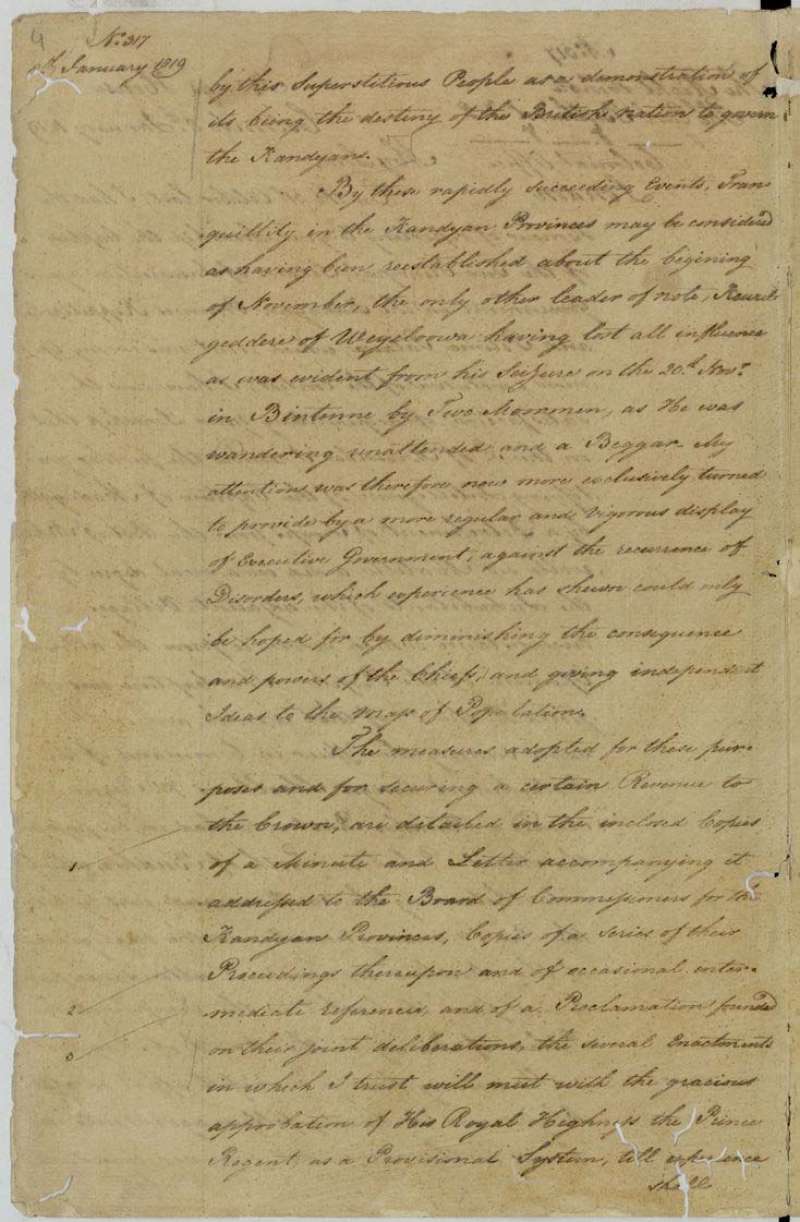 4
No. 317
January 1819
by this Superstitious People as a demonstration of
its being the destiny of the British nation to govern
the Kandyans.
By these rapidly succeeding Events, Tran-
quillity in the Kandyan Provinces may be considered
as having been reestablished about the begining
of November, the only other leader of note,
geddere of Weyeloowa having lost all influence
as was evident from his Seizure on the 20th Novr.
in Bintenne by Two Moormen, as He was
wandering unattended and a Beggar. My
attentions was therefore now more exclusively turned
to provide by a more regular and vigorous display
of Executive Government, against the recurrence of
Disorders, which experience has shewn could only
be hoped for by diminishing the consequence
and powers of the Chiefs, and giving independent
Ideas to the mass of Population.
The measures adopted for these pur-
poses and for securing a certain Revenue to
the Crown, are detailed in the inclosed Copies
1 of a Minute and Letter accompanying it
addressed to the Board of Commissioners for the
Kandyan Provinces, Copies of a series of their
Proceedings thereupon and of occasional inter-
2 mediate references, and of a Proclamation founded
3 on their joint deliberations, the several Enactments
in which I trust will meet with the gracious
approbation of His Royal Highness the Prince
Regent as a Provisional System, till experience
shall